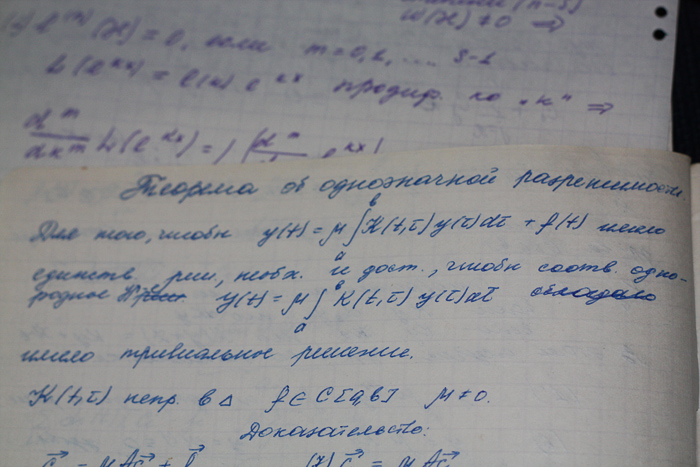 W(x) ≠ 0 ⇒
l^(m)(x) = 0, если m = 0, 1, .... s-1
L(e^αx) = l(α) e^αx продиф. по "α" ⇒
d^m/dα^m L(e^αx) =
Теорема об однозначной разрешимости
Для того, чтобы y(t) = μ ∫_a^b K(t,τ) y(τ)dτ + f(t) имело
единств. реш, необх. и дост., чтобы соотв. одно-
родное y(t) = μ ∫_a^b K(t,τ) y(τ)dτ
имело тривиальное решение.
K(t,τ) непр. в Δ f ∈ C[a,b] μ ≠ 0.
Доказательство: